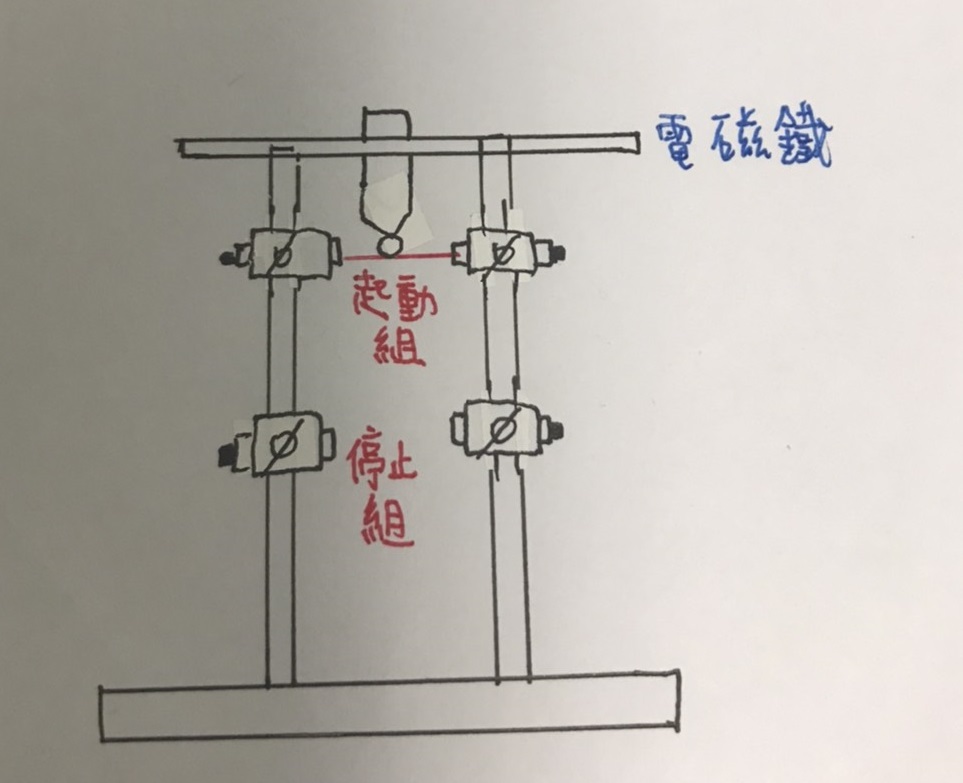 電磁鐵
起動
組
停止
組